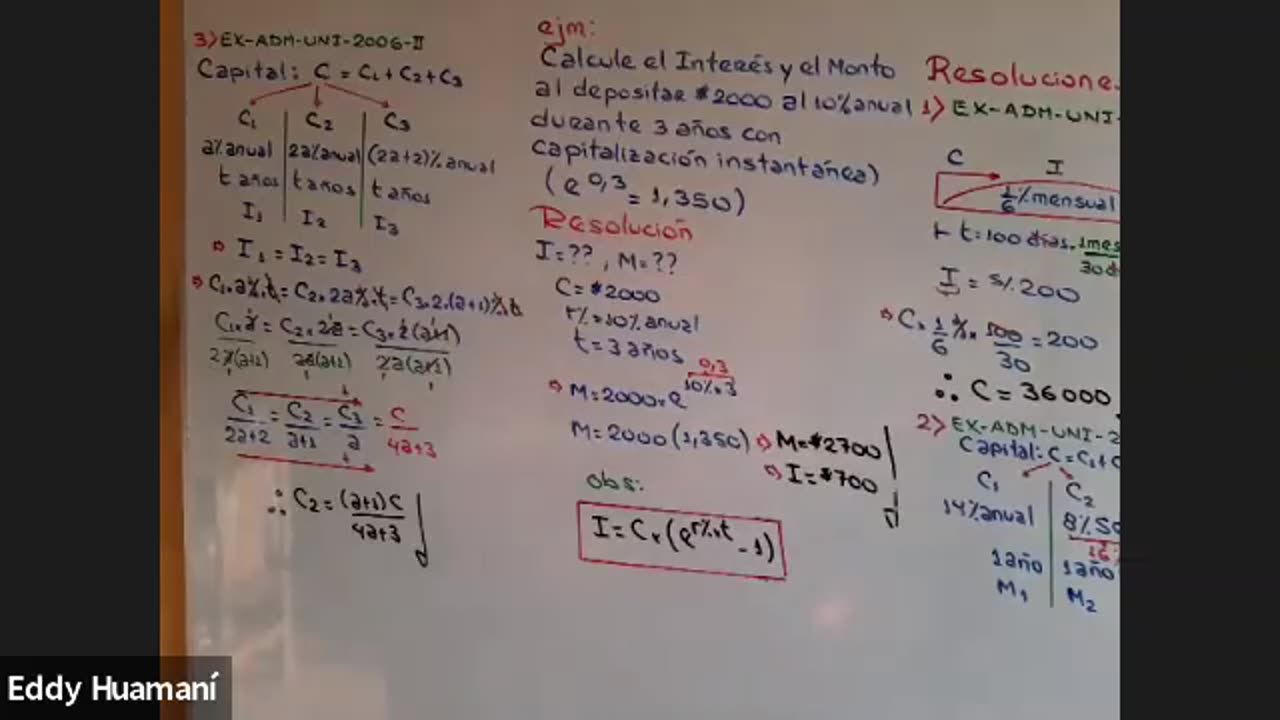 3) EX-ADM-UNI-2006-II
Capital: C = C₁ + C₂ + C₃
C₁ C₂ C₃
a% anual 2a% anual (2a+2)% anual
t años t años t años
I₁ I₂ I₃
⇒ I₁ = I₂ = I₃
⇒ C₁.a%.t = C₂.2a%.t = C₃.2.(a+1)%.t
C₁.a = C₂.2a = C₃.2(a+1)
2a(a+1) 2a(a+1) 2a(a+1)
C₁/2a+2 = C₂/a+1 = C₃/a = C/4a+3
∴ C₂ = (a+1)C/4a+3
ejm:
Calcule el Interés y el Monto
al depositar $2000 al 10% anual
durante 3 años con
capitalización instantánea)
(e^0,3 = 1,350)
Resolución
I=?? , M=??
C= $2000
r%=10% anual
t= 3 años
0,3
⇒ M=2000×e^10%×3
M=2000(1,350) ⇒ M=$2700
⇒ I=$700
obs:
I = C×(e^r%×t - 1)
Resolucione
1) EX-ADM-UNI-
C I
1/6 % mensual
t=100 días. 1mes
30d
I = S/.200
⇒ C × 1/6 % × 100/30 = 200
∴ C = 36000
2) EX-ADM-UNI-2
Capital: C=C₁+C
C₁ C₂
14% anual 8% Se
16
1 año 1 año
M₁ M₂
Eddy Huamaní